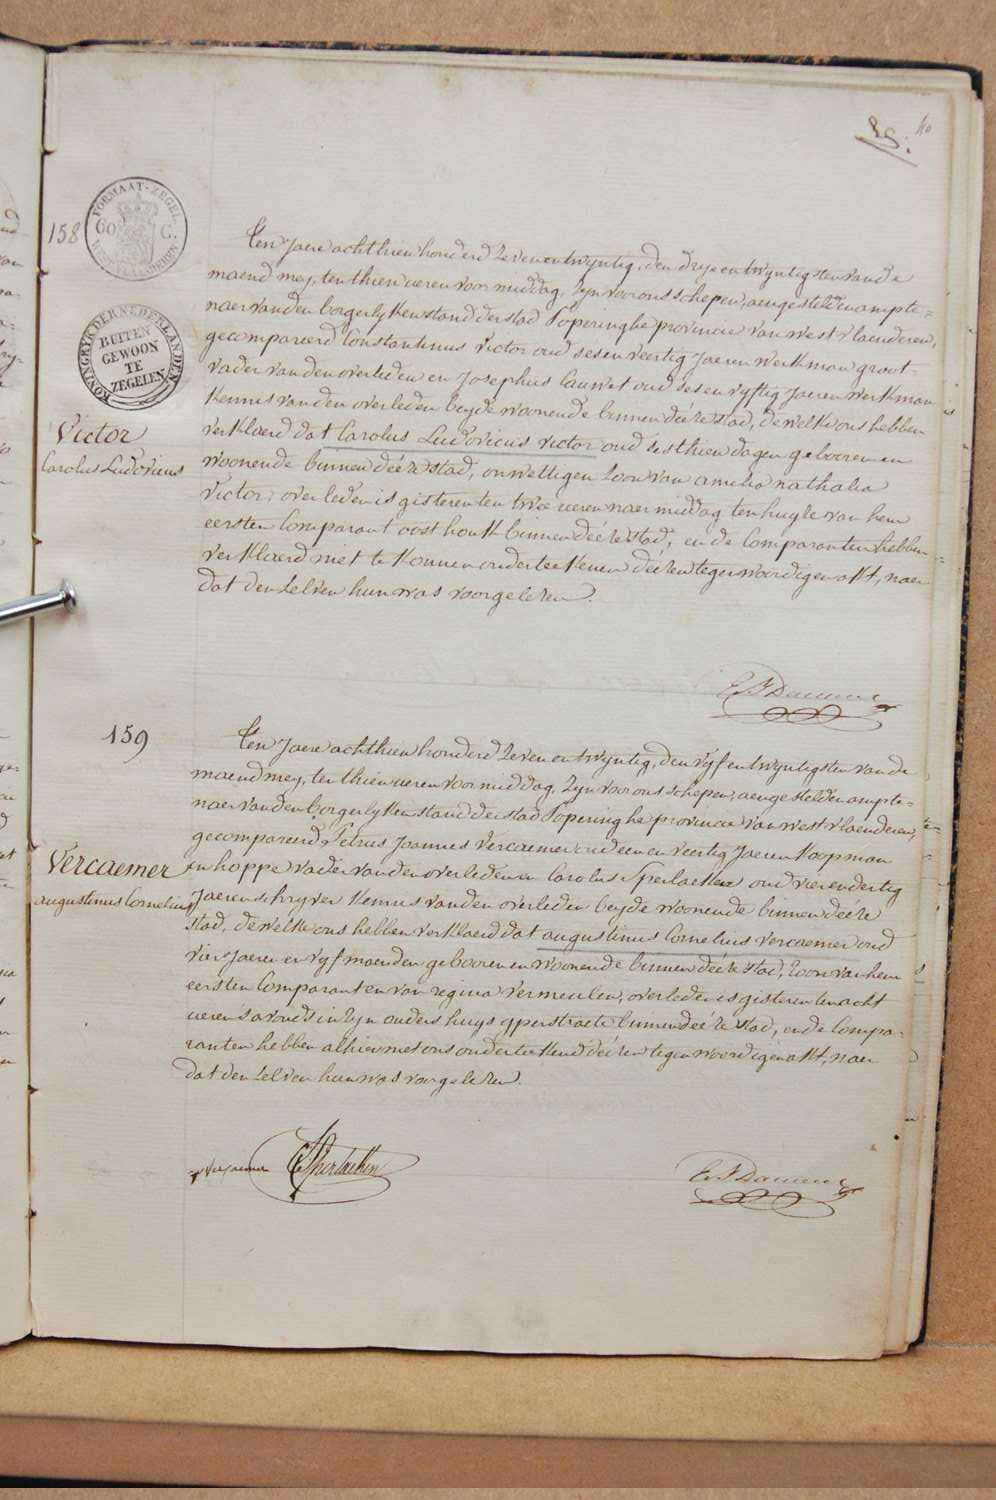 40
FORMAAT-ZEGEL
60 C.
WEST-VLAANDEREN
KONINGRYK DER NEDERLANDEN
BUITEN
GEWOON
TE
ZEGELEN
158
Victor
Carolus Ludovicus
Ten Jaere achthien honderd zeven en twyntig, den dry en twyntigsten van de
maend mey, ten thien ueren voor middag, zyn voor ons schepen, aengestelden ampte=
naer van den borgerlyken stand der stad Poperinghe provincie van west vlaenderen,
gecompareerd Constantinus victor oud ses en veertig Jaeren werkman groot-
vader van den overleden en Josephus Cauwet oud ses en vyftig Jaeren werkman
kennis van den overleden beyde woonende binnen déeze stad, de welke ons hebben
verklaerd dat Carolus Ludovicus victor oud sesthien dagen gebooren en
woonende binnen déeze stad, onwettigen zoon van amelia nathalia
Victor, overleden is gisteren ten twee ueren naer middag ten huyze van hem
eersten Comparant oost houk binnen déeze stad, en de Comparanten hebben
verklaerd niet te konnen onderteekenen déezen tegenwoordigen akt, naer
dat den zelven hun was voorgelezen.
159
Vercaemer
augustinus Cornelius
Ten Jaere achthien honderd zeven en twyntig, den vyf en twyntigsten van de
maend mey, ten thien ueren voor middag, zyn voor ons schepen, aengestelden ampte=
naer van den borgerlyken stand der stad Poperinghe provincie van west vlaenderen,
gecompareerd Petrus Joannes Vercaemer oud een en veertig Jaeren koopman
in hoppe vader van den overleden en Carolus Sperlaeken oud vier en dertig
Jaeren schryver kennis van den overleden beyde woonende binnen déeze
stad, de welke ons hebben verklaerd dat augustinus Cornelius vercaemer oud
vier Jaeren en vyf maenden gebooren en woonende binnen déeze stad, zoon van hem
eersten Comparant en van regina Vermeulen, overleden is gisteren ten acht
ueren s'avonds in zyn ouders huys gperstraete binnen déeze stad, en de Compa-
ranten hebben alhier met ons onderteekend déezen tegenwoordigen akt, naer
dat den zelven hun was voorgelezen.